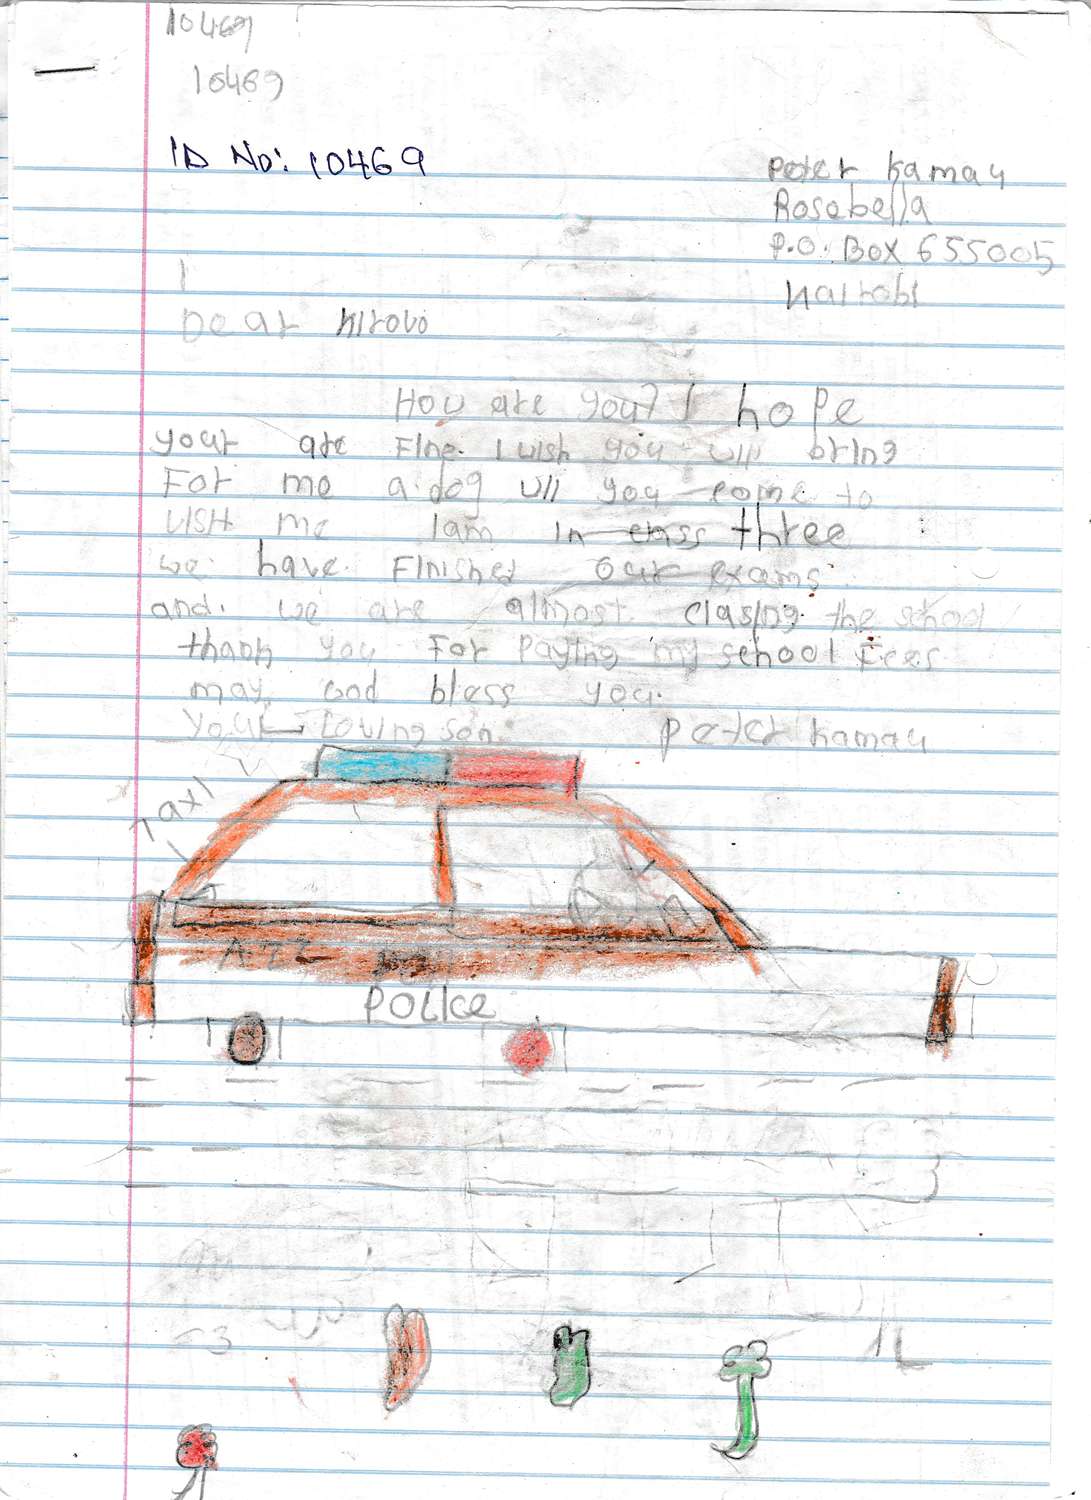 10469
10469
ID No: 10469
Peter Kamau
Rosebella
P.O. Box 655005
Nairobi
Dear
How are you? I hope
your are Fine. I wish you will bring
For me a dog will you come to
visit me Iam in class three
we have Finished our exams
and we are almost clasing the school
thank you For paying my school Fees
may God bless you.
your loving son. Peter Kamau
Taxi
POLICE